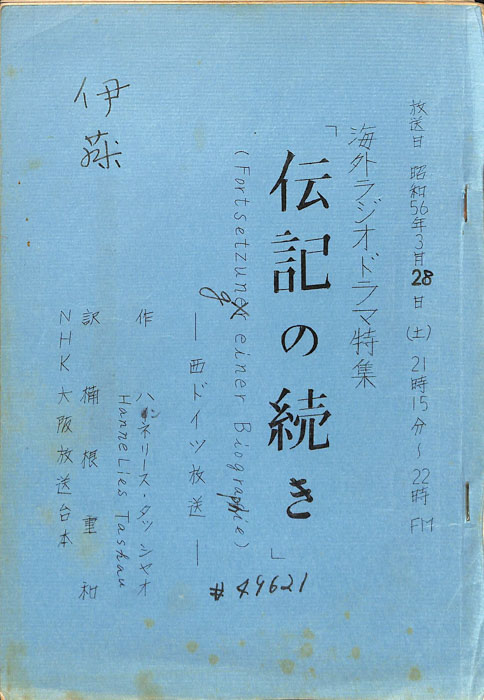 放送日 昭和56年3月28日(土)21時15分~22時 FM
海外ラジオドラマ特集
「伝記の続き」
(Fortsetzung einer Biographie)
―西ドイツ放送―
作 ハンネリース・タッシャオ
Hannelies Taschau
訳 楠根重和
NHK大阪放送台本
伊藤
#49621